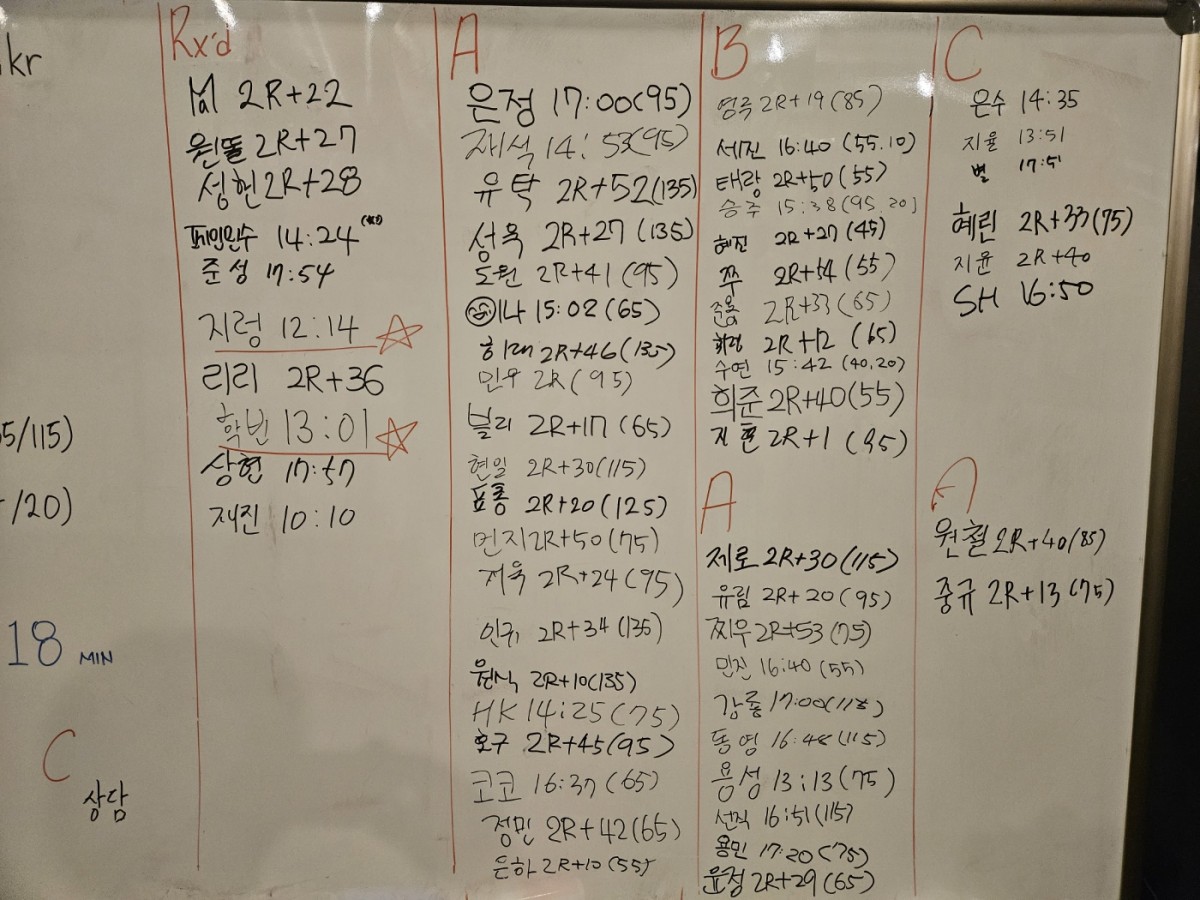 kr
5/115)
/20)
18 MIN
C
상담
Rx'd
2R+22
원똘 2R+27
성헌 2R+28
14:24
준성 17:54
지령 12:14
리리 2R+36
학빈 13:01
상현 17:57
재진 10:10
A
은정 17:00(95)
재석 14:53(95)
유탁 2R+52(135)
성욱 2R+27(135)
도원 2R+41(95)
15:02(65)
희래 2R+46(135)
민우 2R(95)
블리 2R+17(65)
현일 2R+30(115)
표홍 2R+20(125)
먼지 2R+50(75)
저욱 2R+24(95)
인귀 2R+34(135)
원식 2R+10(135)
HK 14:25(75)
호구 2R+45(95)
코코 16:37(65)
정민 2R+42(65)
은하 2R+10(55)
B
영주 2R+19(85)
세진 16:40(55.10)
태랑 2R+50(55)
승주 15:38(95.20)
혜진 2R+27(45)
쭈 2R+54(55)
준옴 2R+33(65)
2R+12(65)
수연 15:42(40,20)
희준 2R+40(55)
지현 2R+1(95)
A
제로 2R+30(115)
유림 2R+20(95)
찌우 2R+53(75)
민진 16:40(55)
강룡 17:00(115)
동영 16:48(115)
용성 13:13(75)
선직 16:51(115)
용민 17:20(75)
윤정 2R+29(65)
C
은수 14:35
지율 13:51
별 17:51
혜린 2R+33(75)
지윤 2R+40
SH 16:50
A
원철 2R+40(85)
중규 2R+13(75)